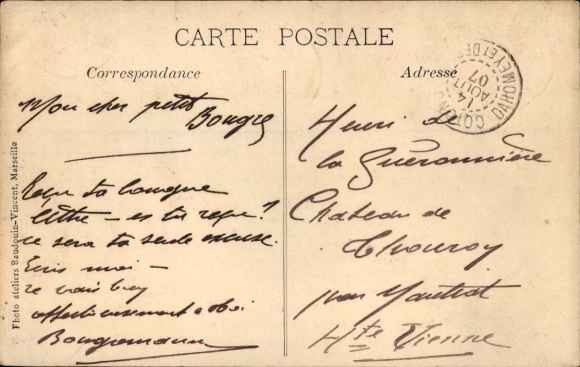 CARTE POSTALE
Correspondance
Adresse
COTON
DAHOMEY ET DÉP
14
AOUT
07
Mon cher petit
Bougre
Reçu ta longue
lettre – es tu reçu?
ce sera ta seule excuse.
Ecris moi –
je vais bien
affectueusement à toi
Henri de
la Guéronnière
Chateau de
par
Hte Vienne
Photo ateliers Baudouin-Vincent, Marseille